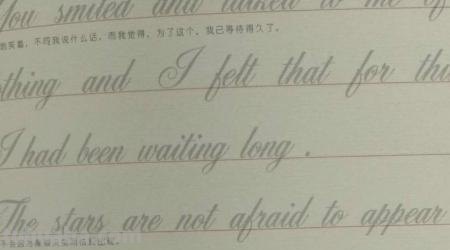 You smiled and talked to me of
地笑着，不同我说什么话。而我觉得，为了这个，我已等待得久了。
othing and I felt that for this
I had been waiting long .
The stars are not afraid to appear